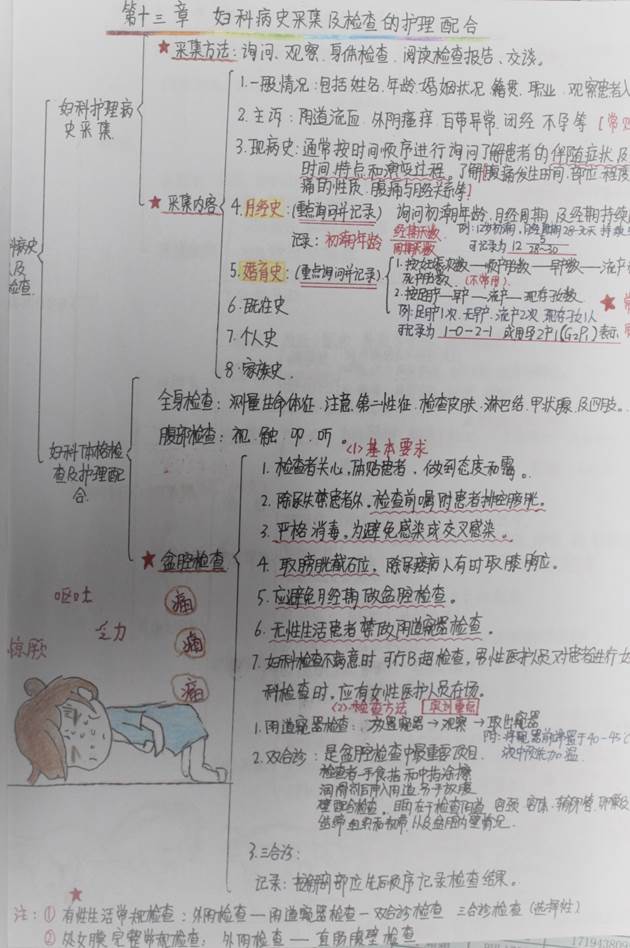 第十三章 妇科病史采集及检查的护理配合
★采集方法：询问、观察、身体检查、阅读检查报告、交谈。
妇科护理病
史采集
★采集内容
1.一般情况：包括姓名.年龄.婚姻状况.籍贯.职业.观察患者入
2.主诉：阴道流血.外阴瘙痒.白带异常.闭经.不孕等
3.现病史：通常按时间顺序进行询问了解患者的伴随症状及
时间.特点和演变过程。了解腹痛发生时间.部位.程度
痛的性质.腹痛与月经关系等]
4.月经史：(重点询问并记录) 询问初潮年龄.月经周期.及经期持续
记录：初潮年龄 经期天数
周期天数
可记录为 12 5
28-30
5.婚育史：(重点询问并记录)
1.按妊娠次数—顺产胎数—早产数—流产
(不常用).
2.按足产—早产—流产—现存子女数.
例:足月产1次.无早产.流产2次.现存子女1人
可记录为 1-0-2-1 或用孕2产1(G2P1)表示
6.既往史
7.个人史
8.家族史.
病史
及
检查.
妇科体格检
查及护理配
合.
全身检查：测量生命体征.注意.第二性征.检查皮肤.淋巴结.甲状腺.及四肢。
腹部检查：视.触.叩.听。
★盆腔检查
(1)基本要求
1.检查者关心,体贴患者，做到态度和霭。
2.除尿失禁患者外,检查前嘱咐患者排空膀胱。
3.严格消毒,为避免感染或交叉感染。
4.取膀胱截石位，除尿瘘病人有时取膝胸位。
5.应避免月经期做盆腔检查。
6.无性生活患者禁做阴道窥器检查。
7.妇科检查不满意时,可行B超检查,男性医护人员对患者进行妇
科检查时,应有女性医护人员在场。
(2)检查方法
1.阴道窥器检查：放置窥器→观察→取出窥器
附：将窥器前端置于40-45℃
2.双合诊：是盆腔检查中最重要项目.
检查者一手食指和中指涂擦
润滑剂后伸入阴道.另手放腹
壁配合检查。目的在于检查阴道.宫颈.宫体.输卵管.卵巢及
3.三合诊：
记录：按解剖部位先后顺序记录检查结果。
呕吐
乏力
惊厥
痛
痛
痛
★
注：①有性生活常规检查：外阴检查—阴道窥器检查—双合诊检查 三合诊检查(选择性)
②处女膜完整常规检查：外阴检查—直肠腹壁检查